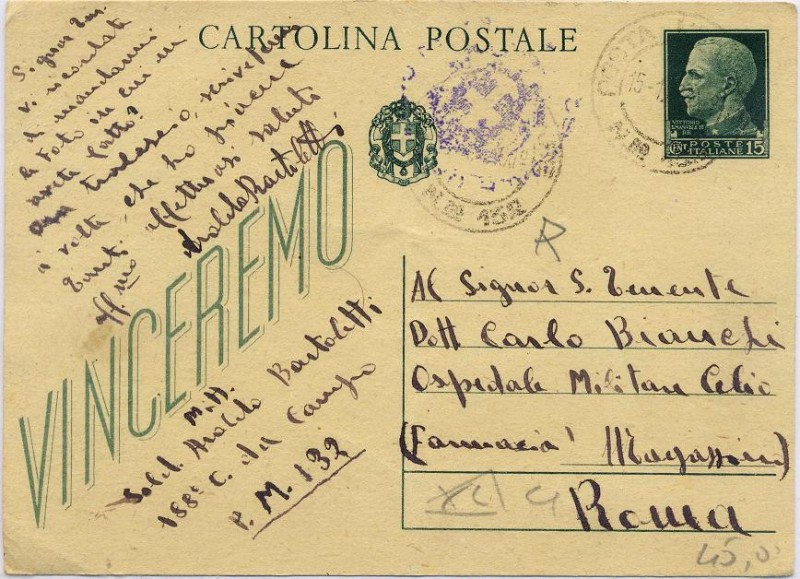 CARTOLINA POSTALE
VITTORIO
EMANUELE III
POSTE
ITALIANE
CENT 15
15
POSTA
N.RO 132
S. gnor Ten.
v. ricordate
di mandarmi
la foto in cui mi
avete fatto?
scrivetemi
a volte, che ho piacere
Tanti affettuosi saluti
aff mo Aroldo Bartoletti
VINCEREMO
M.A.
Sold. Aroldo Bartoletti
188° C. da Campo
P. M. 132
R
Al Signor S. Tenente
Dott Carlo Bianchi
Ospedale Militare Celio
(Farmacia Magazzini)
Roma
45,0